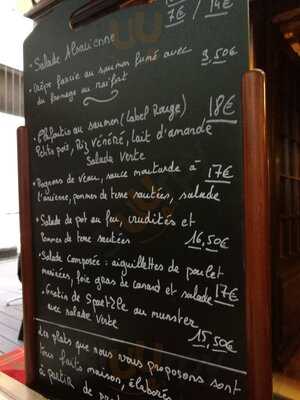 7€ / 14€
- Salade Alsacienne
- Crêpe farcie au saumon fumé avec 3,50€
du fromage au raifort
Clafoutis au saumon (Label Rouge) 18€
Petits pois, Riz vénéré, lait d'amande
Salade Verte
• Rognons de veau, sauce moutarde à 17€
l'ancienne, pommes de terre sautées, salade
• Salade de pot au feu, crudités et
Pommes de terre sautées 16,50€
• Salade Composée : aiguillettes de poulet
marinées, foie gras de canard et salade 17€
- Gratin de Spaetzle au munster
avec salade Verte 15,50€
Les plats que nous vous proposons sont
tous faits maison, élaborés
à partir de